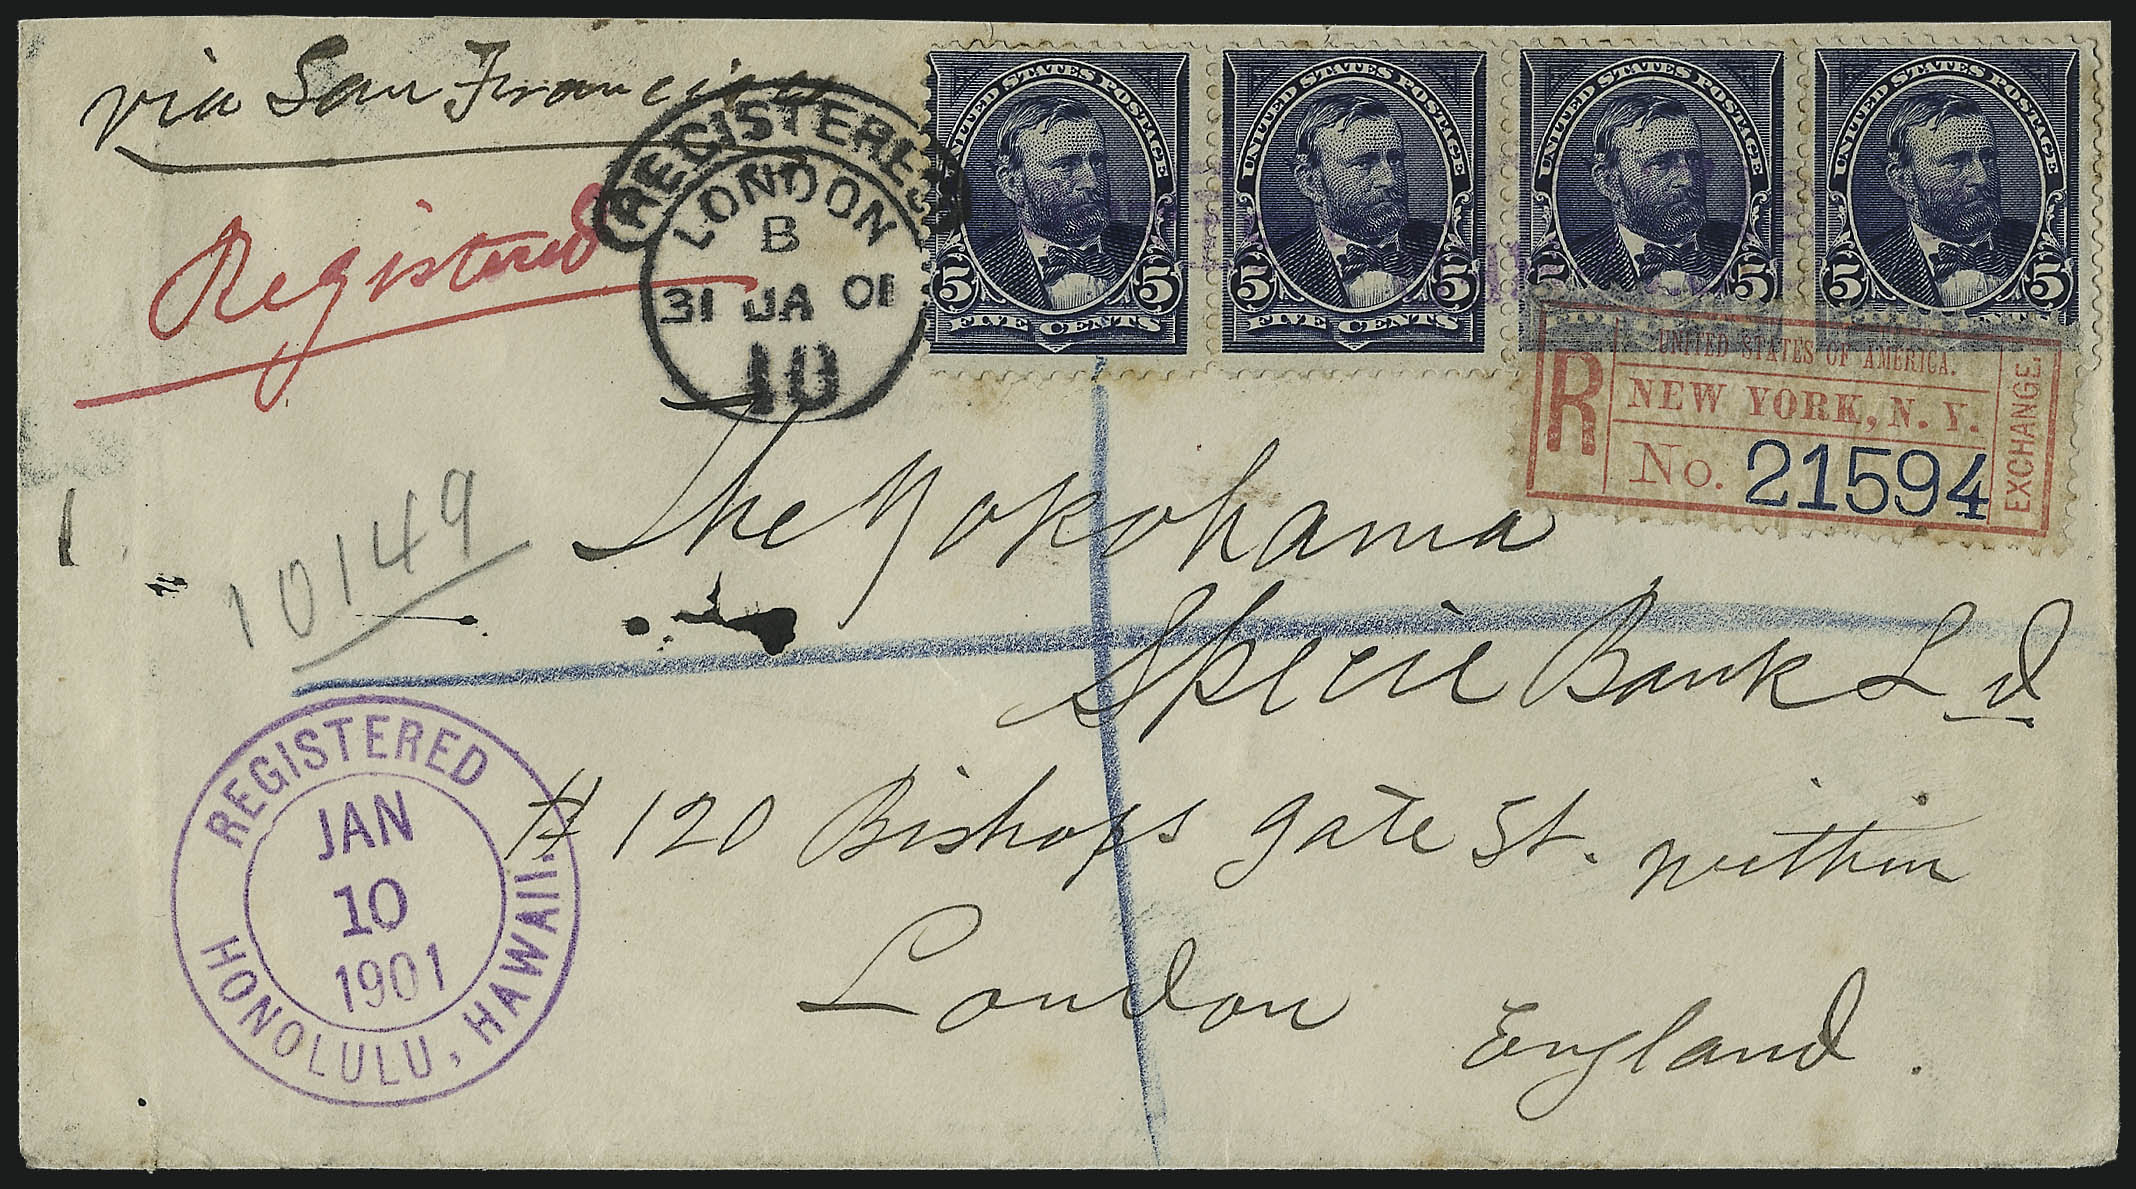 via San Francisco
Registered
REGISTERED
LONDON
B
31 JA 01
10
UNITED STATES POSTAGE
5 5
FIVE CENTS
UNITED STATES POSTAGE
5 5
FIVE CENTS
UNITED STATES POSTAGE
5 5
UNITED STATES POSTAGE
5 5
R
UNITED STATES OF AMERICA.
NEW YORK, N. Y.
No. 21594
EXCHANGE.
10149
The Yokohama
Specie Bank Ld
# 120 Bishops gate St. within
London
England.
REGISTERED
JAN
10
1901
HONOLULU, HAWAII.